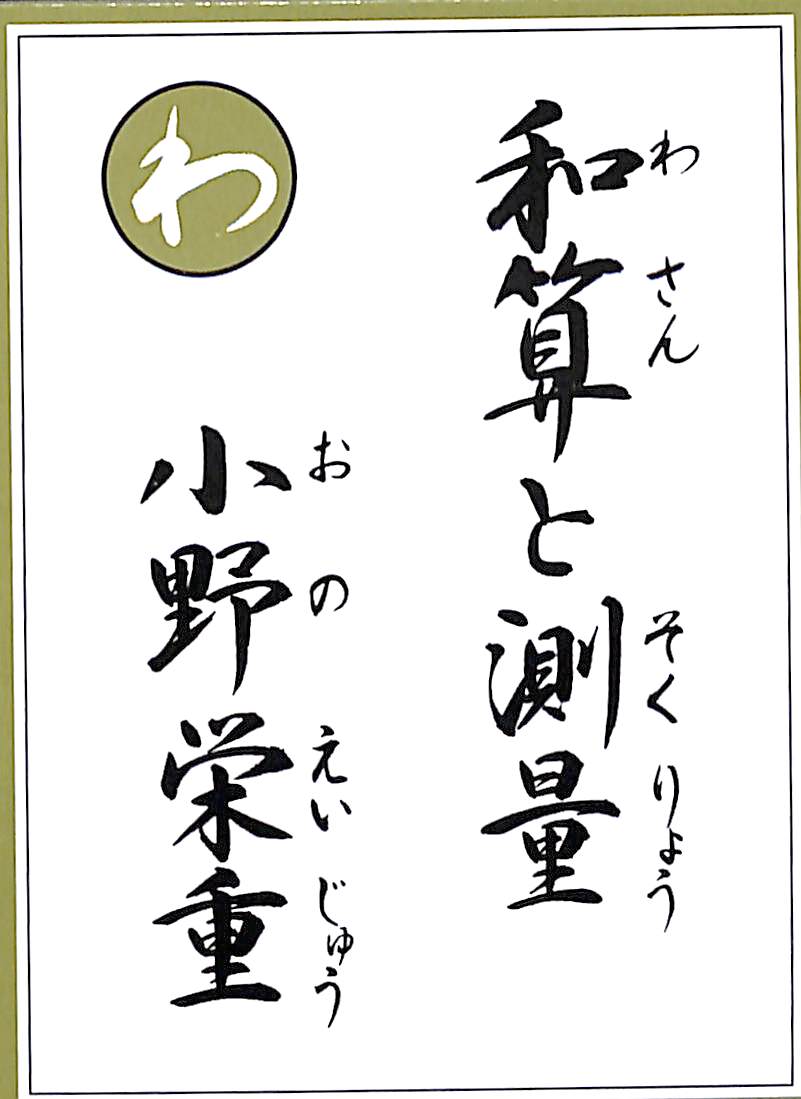 わ
和算と測量
わさん
そくりょう
小野栄重
おの
えいじゅう